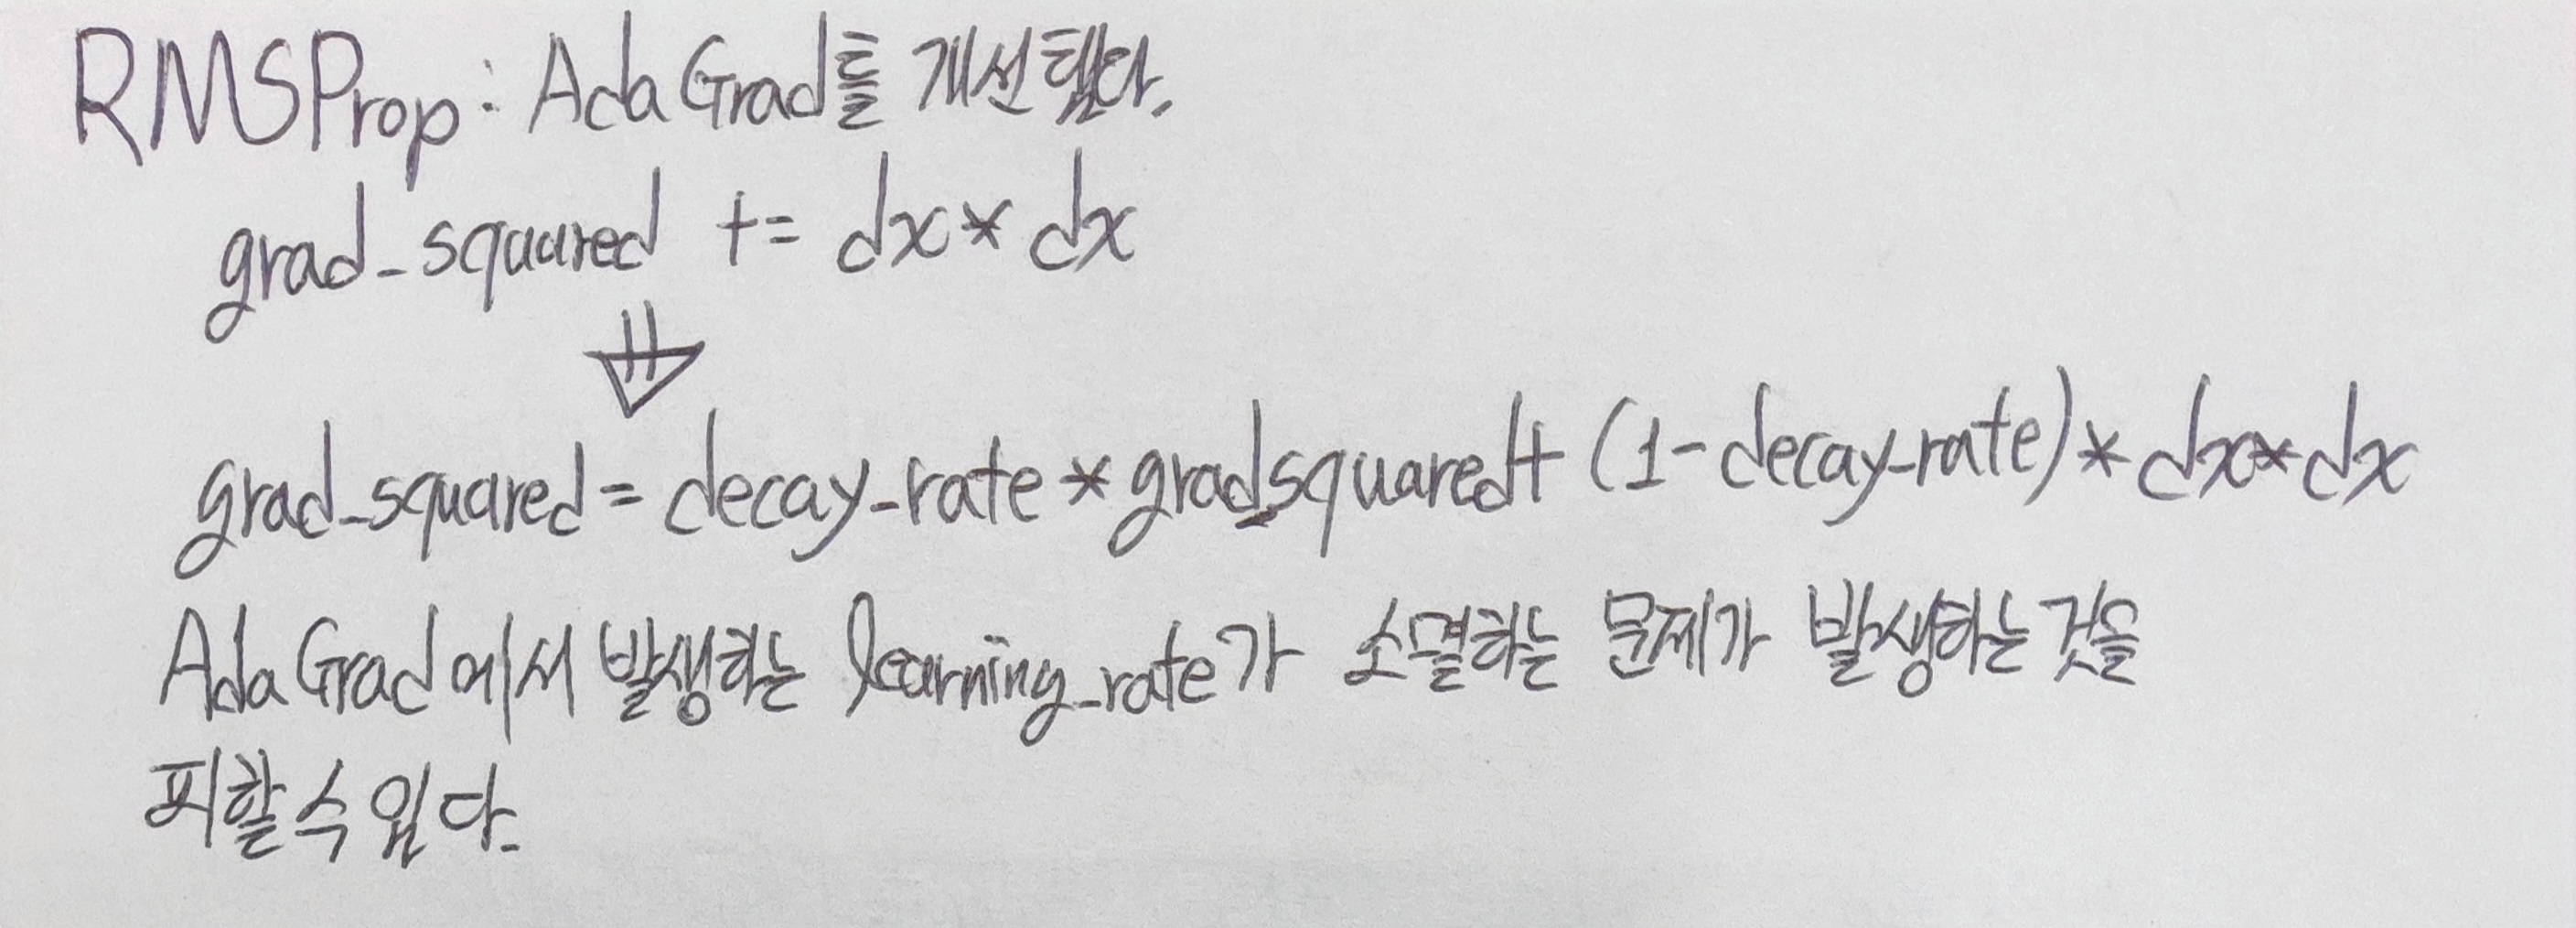 RMSProp : AdaGrad를 개선했다.
grad_squared += dx * dx
⇓
grad_squared = decay_rate * grad_squared + (1 - decay_rate) * dx * dx
AdaGrad에서 발생하는 learning_rate가 소멸하는 문제가 발생하는 것을
피할 수 있다.